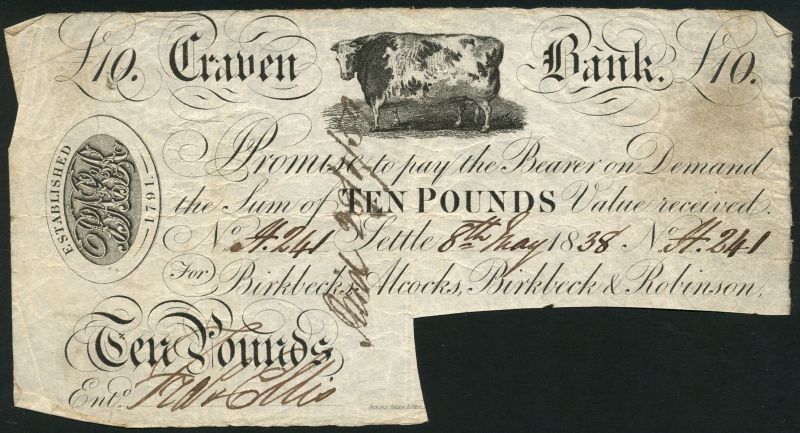 £10. Craven Bank. £10.
ESTABLISHED 1791
I Promise to pay the Bearer on Demand
the Sum of TEN POUNDS Value received.
No. A.241 Settle 8th May 1838 No. A.241
For Birkbecks, Alcocks, Birkbeck & Robinson,
Ten Pounds
Entd. Fredk Ellis